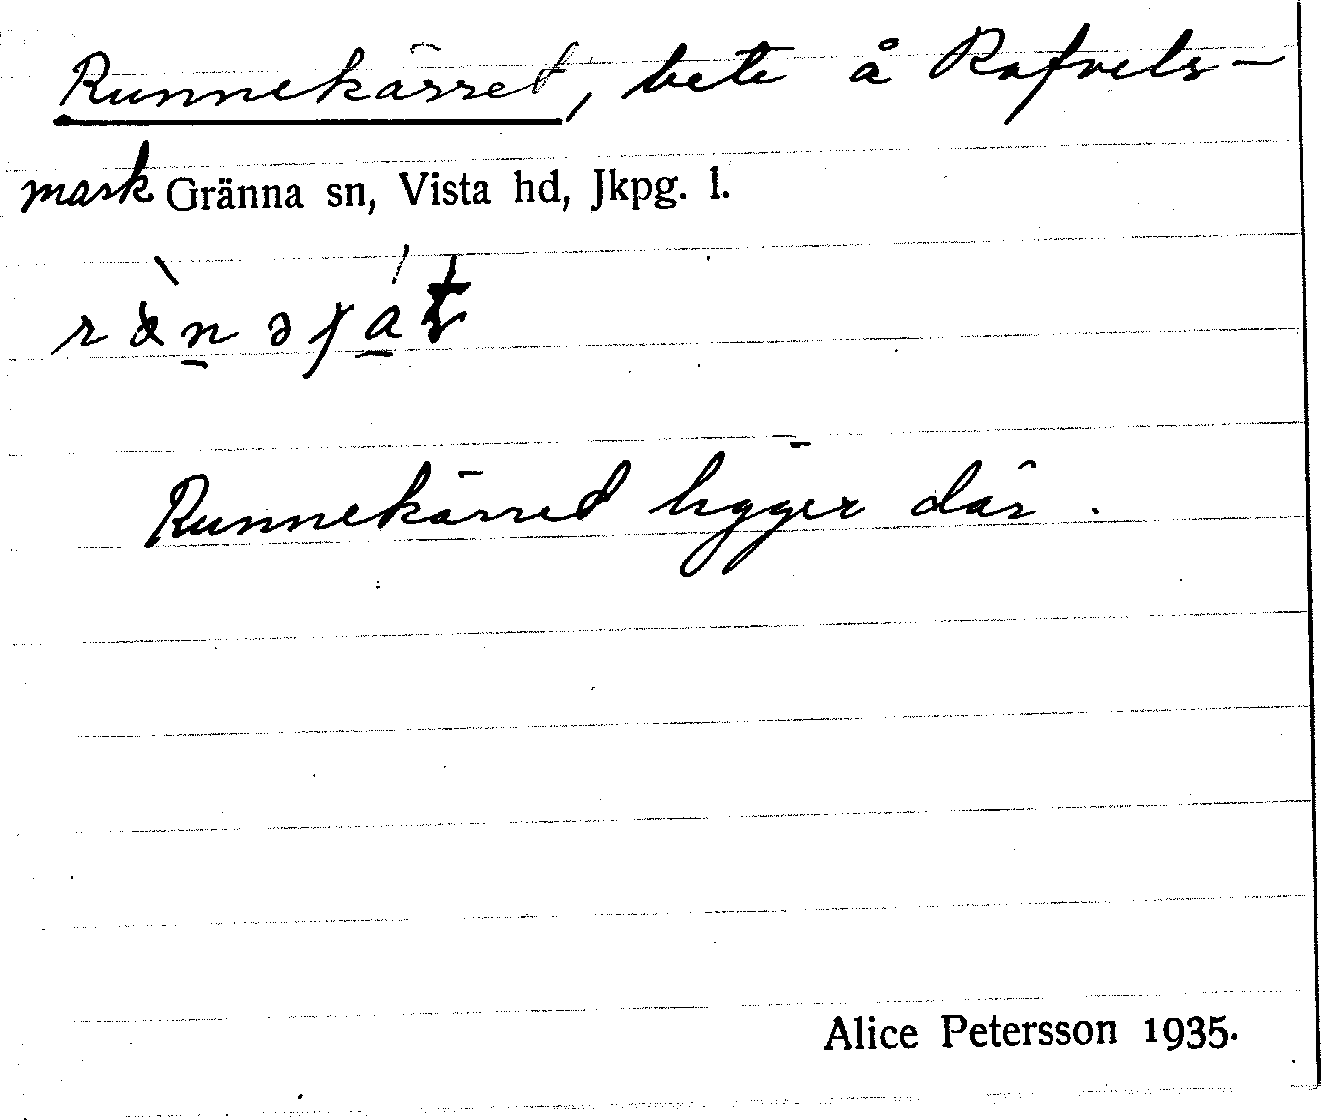 Runnekärret, bete å Rafvels-
mark Gränna sn, Vista hd, Jkpg. l.
Runnekärred ligger där.
Alice Petersson 1935.